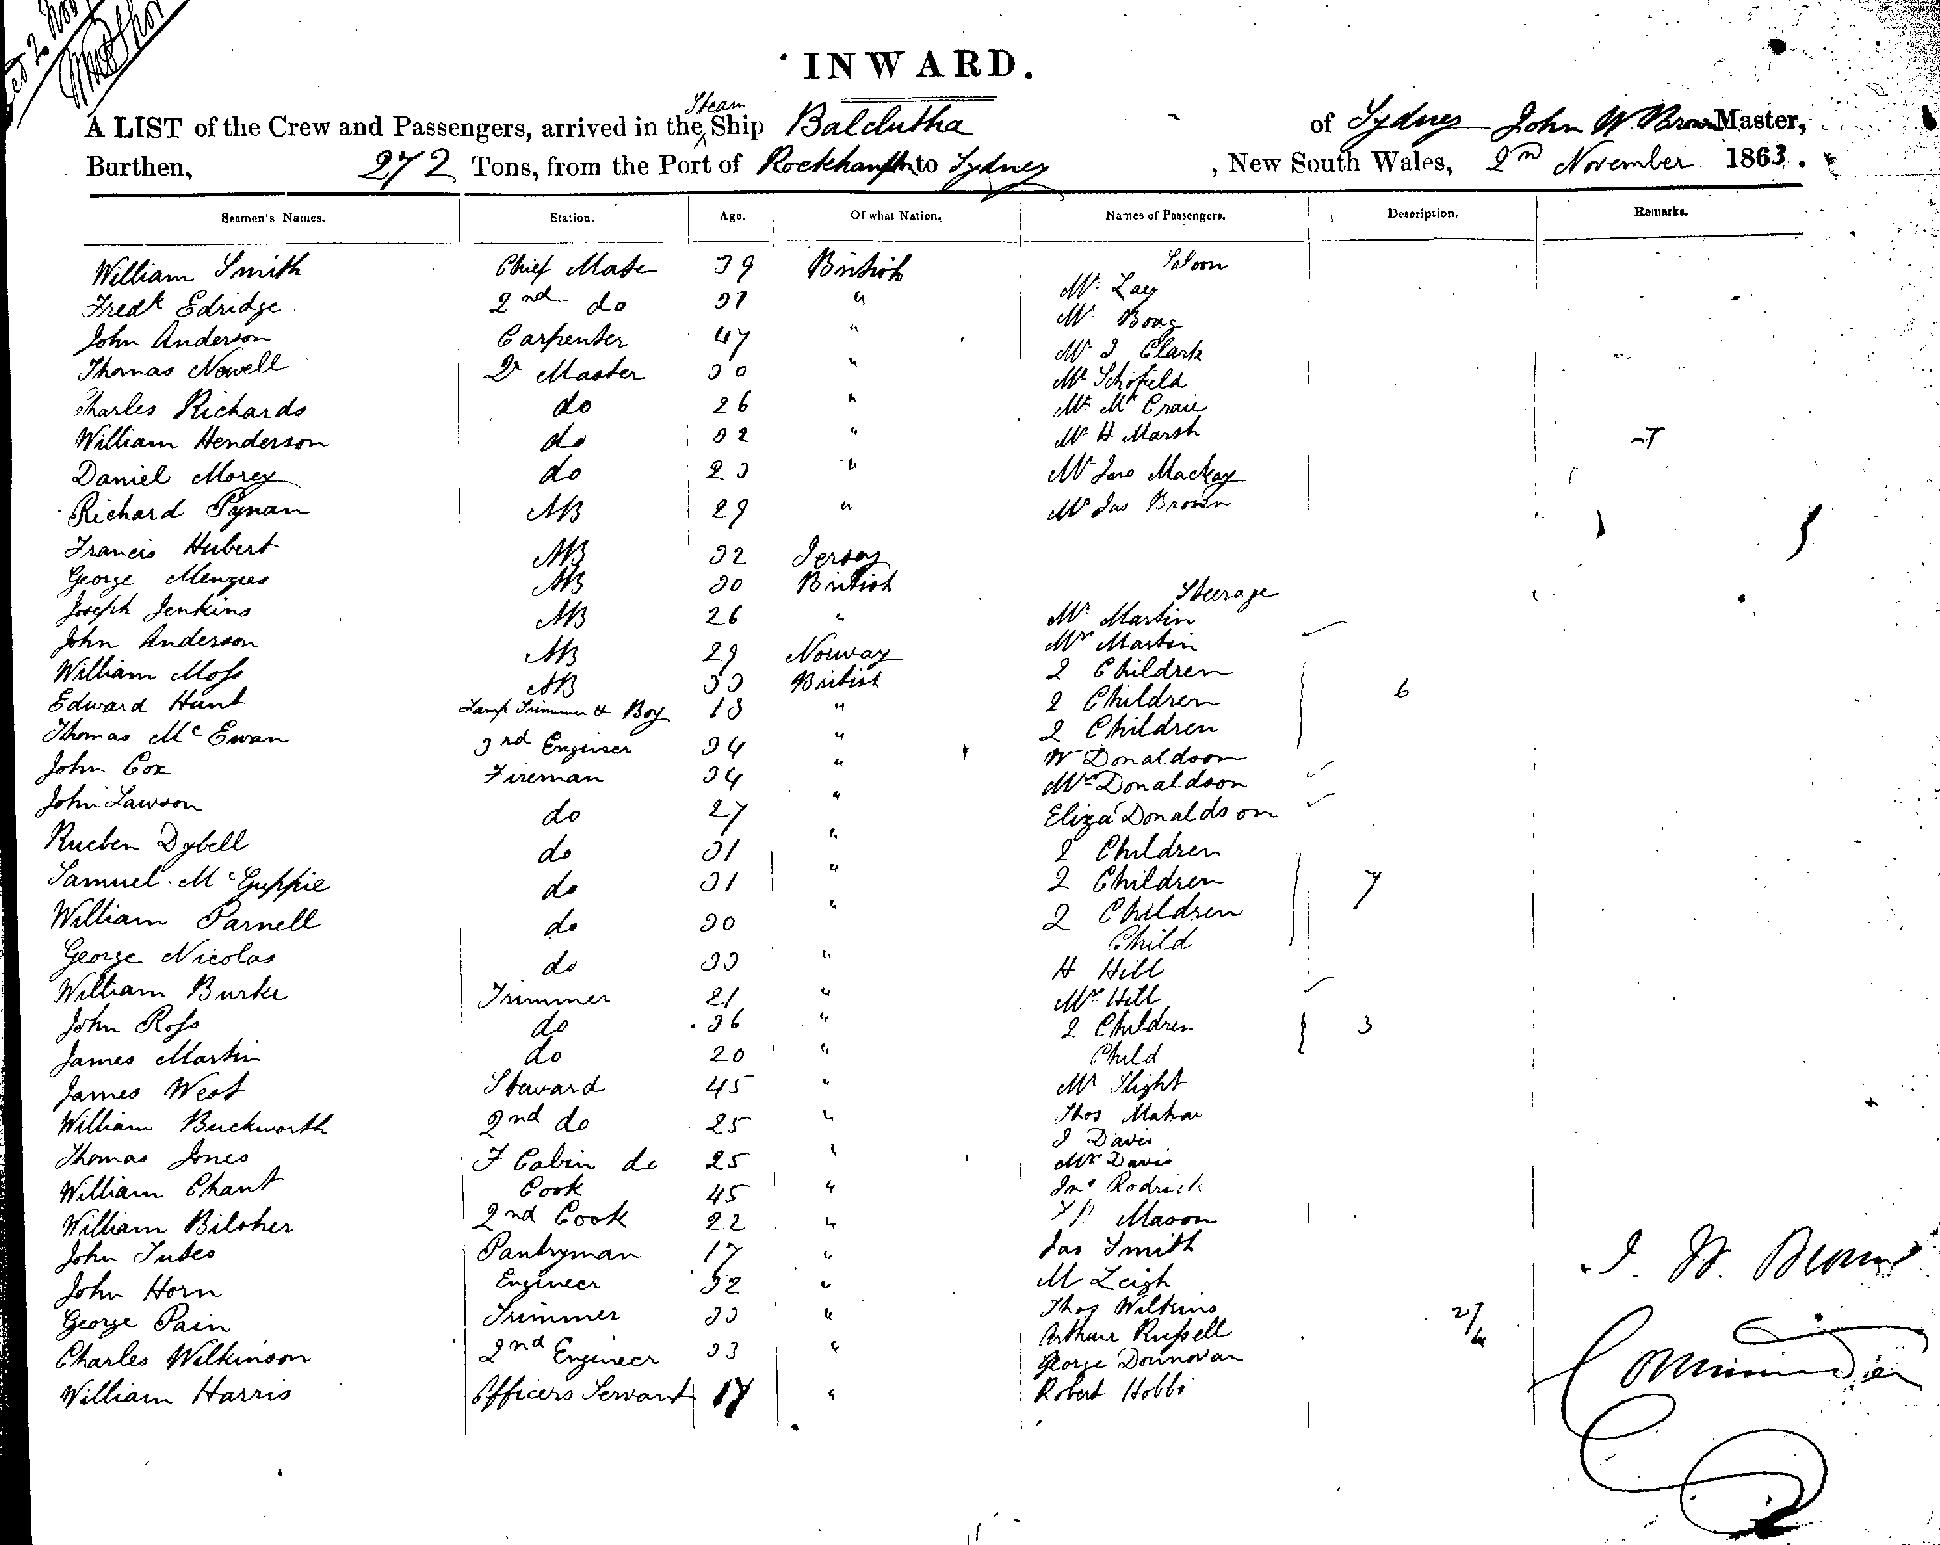 INWARD.
A LIST of the Crew and Passengers, arrived in the Steam Ship Balclutha of Sydney John W. Brown Master,
Burthen, 272 Tons, from the Port of Rockhampton to Sydney, New South Wales, 2nd November 1863.
Seamen's Names. Station. Age. Of what Nation. Names of Passengers. Description. Remarks.
William Smith Chief Mate 39 British Saloon
Fredk Edridge 2nd do 31 " Mr
John Anderson Carpenter 47 " Mr
Thomas Nowell Qr Master 30 " Mr J Clark
Charles Richards do 26 " Mr Schofield
William Henderson do 32 " Mr H Marsh
Daniel Morey do 23 " Mr Jno Mackay
Richard Pynam AB 29 " Mr Jas Brown
Francis Hubert AB 32 Jersey
George Menzies AB 30 British Steerage
Joseph Jenkins AB 26 " Mr Martin
John Anderson AB 29 Norway Mrs Martin
William Moss AB 33 British 2 Children
Edward Hunt Lamp Trimmer & Boy 18 " 2 Children 6
Thomas McEwan 3rd Engineer 34 " 2 Children
John Cox Fireman 34 " W Donaldson
John Lawson do 27 " Mrs Donaldson
Rueben Dybell do 31 " Eliza Donaldson
Samuel McGuppie do 31 " 2 Children
William Parnell do 30 " 2 Children 7
George Nicolas do 33 " 2 Children
Child
William Burke Trimmer 21 " H Hill
John Ross do 36 " Mrs Hill
James Martin do 20 " 2 Children 3
Child
James West Steward 45 " Mr Slight
William Buckworth 2nd do 25 " Thos
Thomas Jones F Cabin do 25 " J Davis
Mrs Davis
William Chant Cook 45 " Jno Rodrick
William Bilsher 2nd Cook 22 " Mason
John Tubes Pantryman 17 " Jas Smith
John Horn Engineer 32 " M Leigh
George Pain Trimmer 33 " Thos Wilkins
Charles Wilkinson 2nd Engineer 33 " Arthur Russell
George Donnovan
William Harris Officers Servant 17 " Robert Hobbs
J. W. Brown
Commander